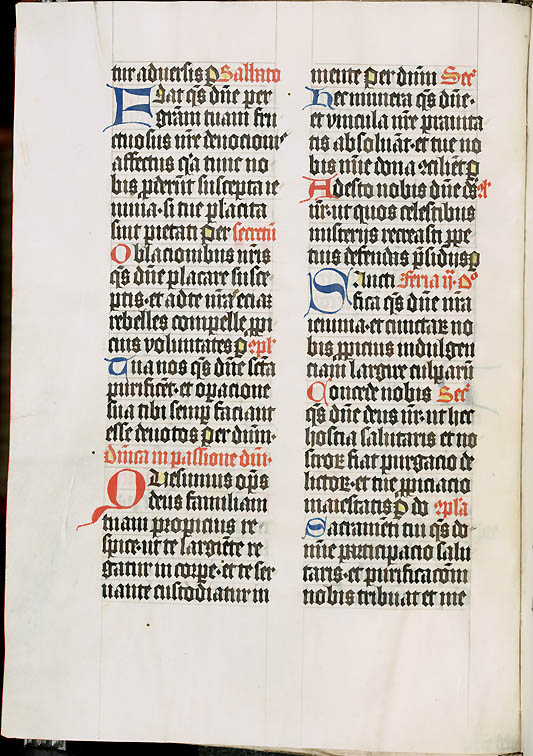 tur adversis p Sabbato
Fiat qs dne per
gram tuam fru
ctuosus nre devocionis
affectus qa tunc no
bis pderunt suscepta ie
iunia si tue placita
sint pietati per secretu
Oblacionibus nris
qs dne placare susce
ptis et ad te nras eciam
rebelles compelle ppi
cius voluntates p pl
Tua nos qs dne scta
purificent et opacione
sua tibi semp faciant
esse devotos per dum
dnica in passione dni
Qvesumus ops
deus familiam
tuam propicius re
spice ut te largiente re
gatur in corpe et te ser
uante custodiatur in
mente per dum Sec
Hec munera qs dne
et vincula nre pravita
tis absoluant et tue no
bis mie dona concilient p
Adesto nobis dne ds
nr ut quos celestibus
misterijs recreasti ppe
tuis defendas psidiis p
Sancti Feria ij
fica qs dne nra
ieiunia et cunctarum no
bis ppicius indulgen
ciam largire culparum
Concede nobis Sec
qs dne deus nr ut hec
hostia salutaris et no
strorum fiat purgacio de
lictorum et tue piciacio
maiestatis p do pla
Sacramenti tui qs do
mie participacio salu
taris et purificacom
nobis tribuat et me